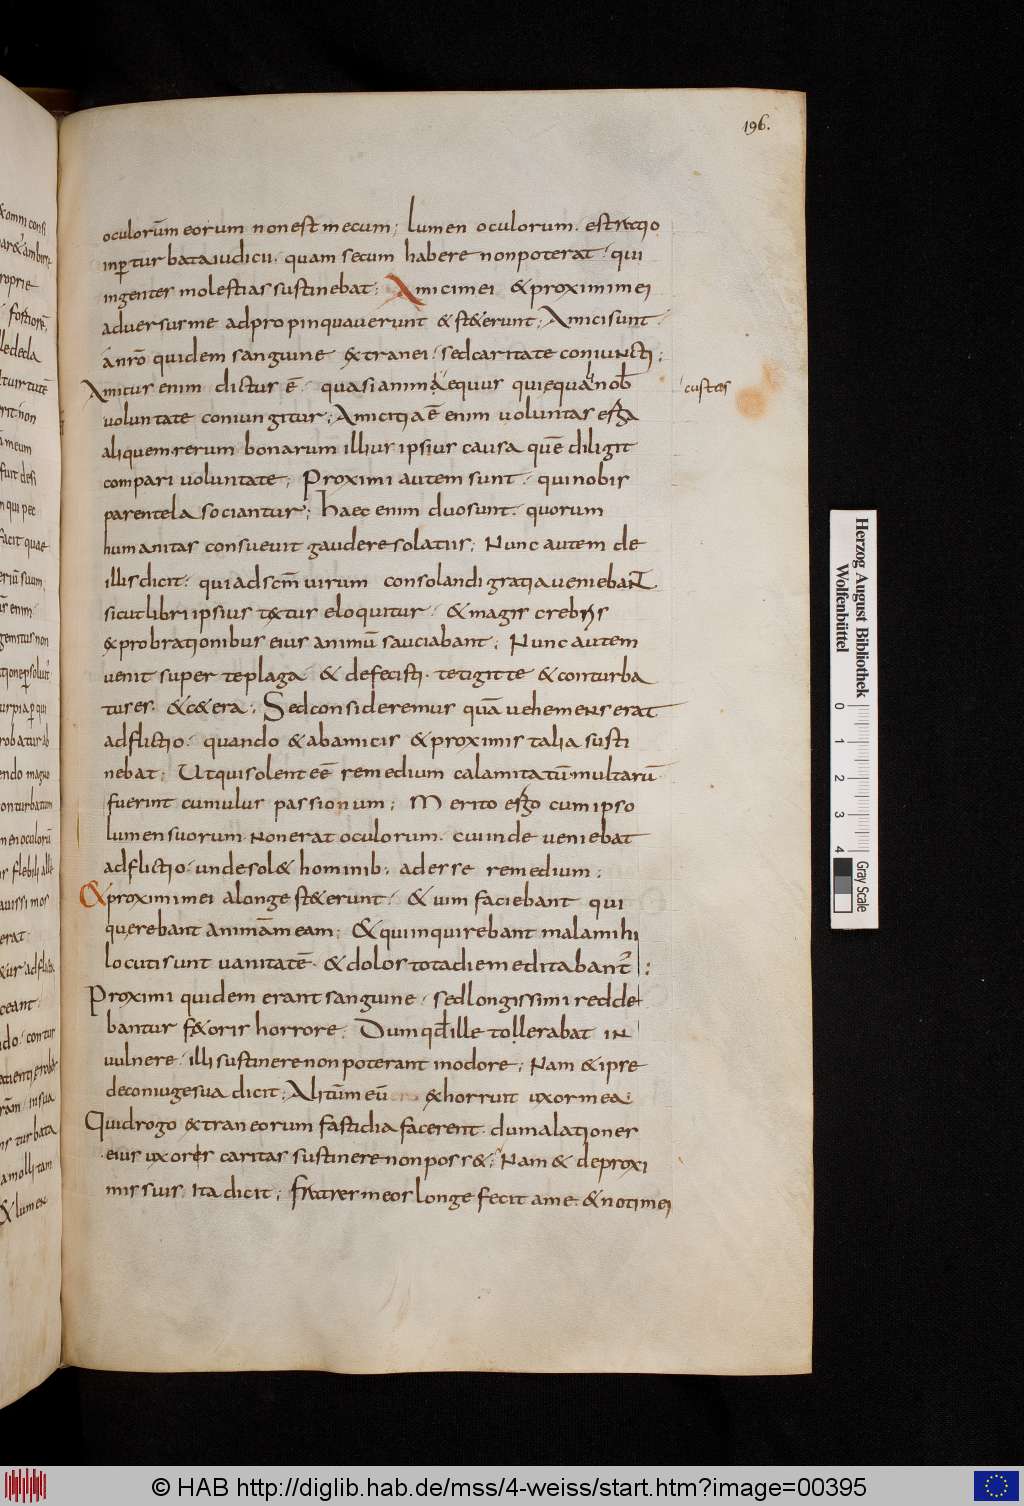 196.
oculorū eorum non est mecum; lumen oculorum. est ratio
inꝑturbata iudicii. quam secum habere non poterat. qui
ingentes molestias sustinebat; Amici mei & proximi mei
aduersus me adpropinquauerunt & st&erunt; Amici sunt.
a nr̄o quidem sanguine extranei. sed caritate coniuncti;
Amicus enim dictus ē. quasi animę equus qui equa nob̄
custos
uoluntate coniungitur; Amicitia ē enim uoluntas erga
aliquem rerum bonarum illius ipsius causa quē diligit
compari uoluntate; Proximi autem sunt. qui nobis
parentela sociantur; Haec enim duo sunt. quorum
humanitas consueuit gaudere solatiis; Nunc autem de
illis dicit. qui ad scm̄ uirum consolandi gratia ueniebant
sicut libri ipsius textus eloquitur. & magis crebris
exprobrationibus eius animū sauciabant; Nunc autem
uenit super te plaga & defecisti. tetigit te & conturba
tus es. & c&era; Sed consideremus quā uehemens erat
adflictio. quando & ab amicis & proximis talia susti
nebat; Ut qui solent eē remedium calamitatū multarū.
fuerint cumulus passionum; Merito ergo cum ipso
lumen suorum non erat oculorum. cui inde ueniebat
adflictio. unde sol& hominib; adesse remedium;
& proximi mei a longe st&erunt. & uim faciebant qui
querebant animā meam; & qui inquirebant mala mihi
locuti sunt uanitatē. & dolos tota die meditabant᷑;
Proximi quidem erant sanguine. sed longissimi redde
bantur fetoris horrore. Dum qđ ille tollerabat in
uulnere. illi sustinere non poterant in odore; Nam & ipse
de coniuge sua dicit; Alitū meū exhorruit uxor mea.
Quid rogo extraneorum fastidia facerent. dum alationes
eius uxoris caritas sustinere non poss&; Nam & de proxi
mis suis ita dicit; Fratres meos longe fecit a me. & noti mei
Herzog August Bibliothek
Wolfenbüttel
0 1 2 3 4
Gray Scale
© HAB http://diglib.hab.de/mss/4-weiss/start.htm?image=00395